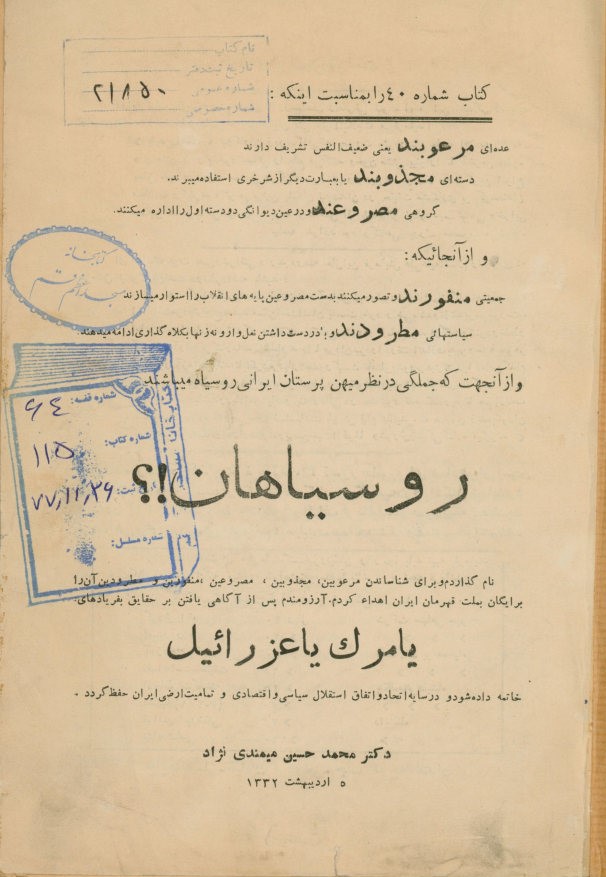 نام کتاب
تاریخ ثبت دفتر
شماره عمومی ۲۱۸۵۰
شماره خصوصی
کتاب شماره ۴۰ را بمناسبت اینکه :
عده‌ای مرعوبند یعنی ضعیف‌النفس تشریف دارند
دسته‌ای مجذوبند یا بعبارت دیگر از شر خری استفاده میبرند.
گروهی مصروعند و در عین دیوانگی دو دسته اول را اداره میکنند.
و از آنجائیکه :
جمعیتی منفورند و تصور میکنند بدست مصروعین پایه های انقلاب را استوار میسازند
سیاستهائی مطرودند و با در دست داشتن نعل وارونه ز نها بکلاه گذاری ادامه میدهند.
و از آنجهت که جملگی در نظر میهن پرستان ایرانی روسیاه میباشند
رو سیاهان!؟
نام گذاردم و برای شناساندن مرعوبین، مجذوبین ، مصروعین ،منفورین و مطرودین آن را
برایگان بملت قهرمان ایران اهداء کردم. آرزومندم پس از آگاهی یافتن بر حقایق بفریادهای:
یا مرگ یا عزرائیل
خاتمه داده شود و در سایه اتحاد و اتفاق استقلال سیاسی و اقتصادی و تمامیت ارضی ایران حفظ گردد .
دکتر محمد حسین میمندی نژاد
۵ اردیبهشت ۱۳۳۲
کتابخانه
مسجد اعظم قم
شماره قفسه: ۶۴
شماره کتاب: ۱۱۵
ثبت: ۷۷,۱۱,۲۶
شماره مسلسل:
کتابخانه